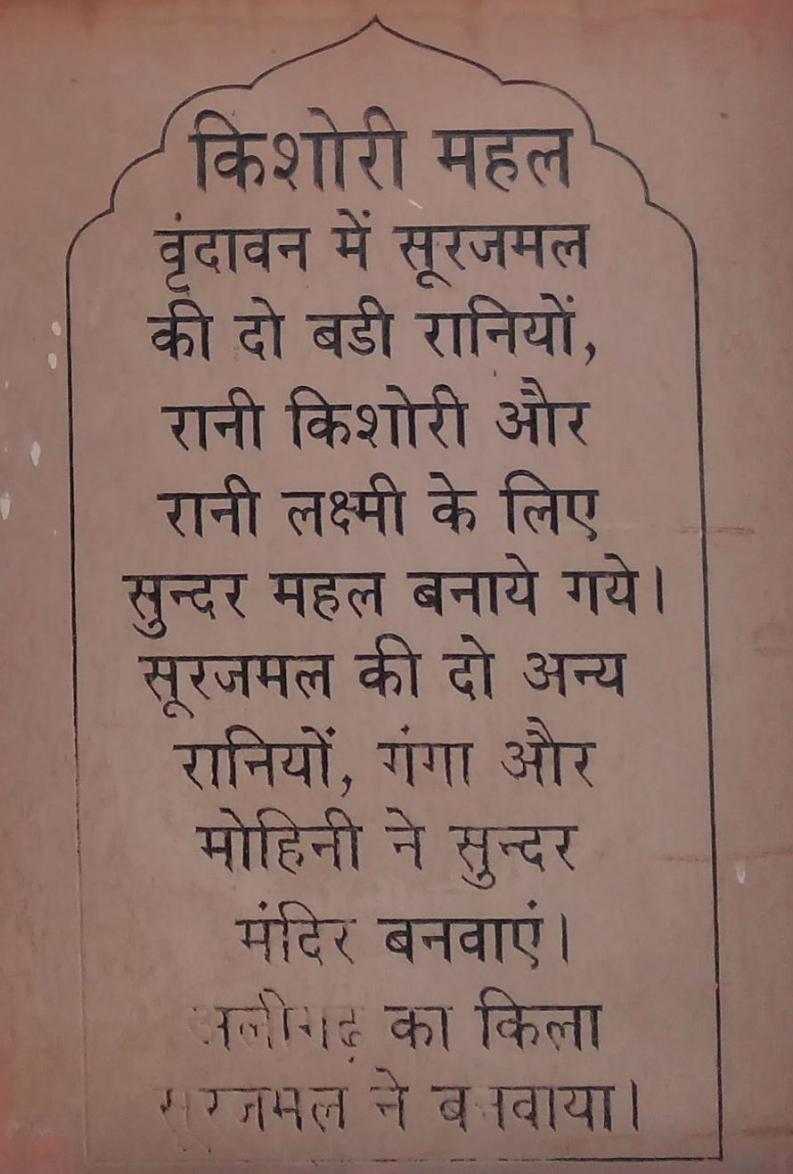 किशोरी महल
वृंदावन में सूरजमल
की दो बडी रानियों,
रानी किशोरी और
रानी लक्ष्मी के लिए
सुन्दर महल बनाये गये।
सूरजमल की दो अन्य
रानियों, गंगा और
मोहिनी ने सुन्दर
मंदिर बनवाएं।
अलीगढ़ का किला
सूरजमल ने बनवाया।